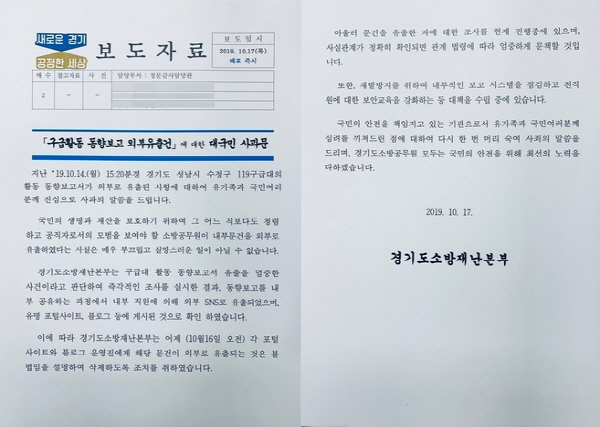 새로운 경기
공정한 세상
보도자료
보 도 일 시
2019. 10.17(목)
배포 즉시
매 수 참고자료 사 진 담당부서 : 청문감사담당관
2 - -
「구급활동 동향보고 외부유출건」에 대한 대국민 사과문
지난 '19.10.14.(월) 15:20분경 경기도 성남시 수정구 119구급대의
활동 동향보고서가 외부로 유출된 사항에 대하여 유가족과 국민여러
분께 진심으로 사과의 말씀을 드립니다.
국민의 생명과 재산을 보호하기 위하여 그 어느 직보다도 청렴
하고 공직자로서의 모범을 보여야 할 소방공무원이 내부문건을 외부로
유출하였다는 사실은 매우 부끄럽고 실망스러운 일이 아닐 수 없습니다.
경기도소방재난본부는 구급대 활동 동향보고서 유출을 엄중한
사건이라고 판단하여 즉각적인 조사를 실시한 결과, 동향보고를 내
부 공유하는 과정에서 내부 직원에 의해 외부 SNS로 유출되었으며,
유명 포털사이트, 블로그 등에 게시된 것으로 확인 하였습니다.
이에 따라 경기도소방재난본부는 어제 (10월16일 오전) 각 포털
사이트와 블로그 운영진에게 해당 문건이 외부로 유출되는 것은 불
법임을 설명하여 삭제하도록 조치를 취하였습니다.
아울러 문건을 유출한 자에 대한 조사를 현재 진행중에 있으며,
사실관계가 정확히 확인되면 관계 법령에 따라 엄중하게 문책할 것입
니다.
또한, 재발방지를 위하여 내부적인 보고 시스템을 점검하고 전직
원에 대한 보안교육을 강화하는 등 대책을 수립 중에 있습니다.
국민의 안전을 책임지고 있는 기관으로서 유가족과 국민여러분께
심려를 끼쳐드린 점에 대하여 다시 한 번 머리 숙여 사죄의 말씀을
드리며, 경기도소방공무원 모두는 국민의 안전을 위해 최선의 노력을
다하겠습니다.
2019. 10. 17.
경기도소방재난본부